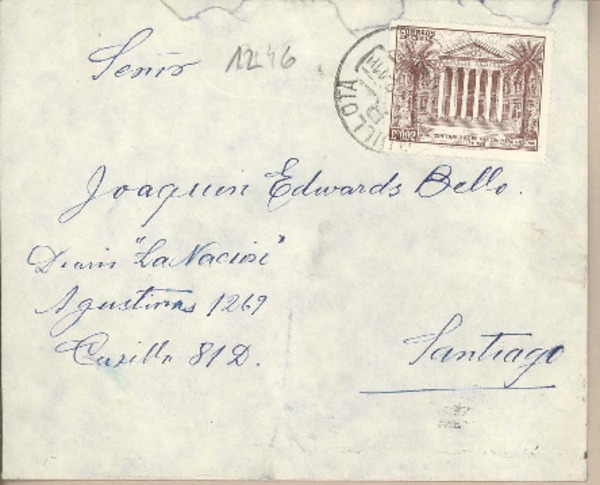 Señor
12446
CORREOS
DE CHILE
E°0,02
QUILLOTA
Joaquin Edwards Bello.
Diario "La Nación"
Agustinas 1269
Casilla 81D.
Santiago